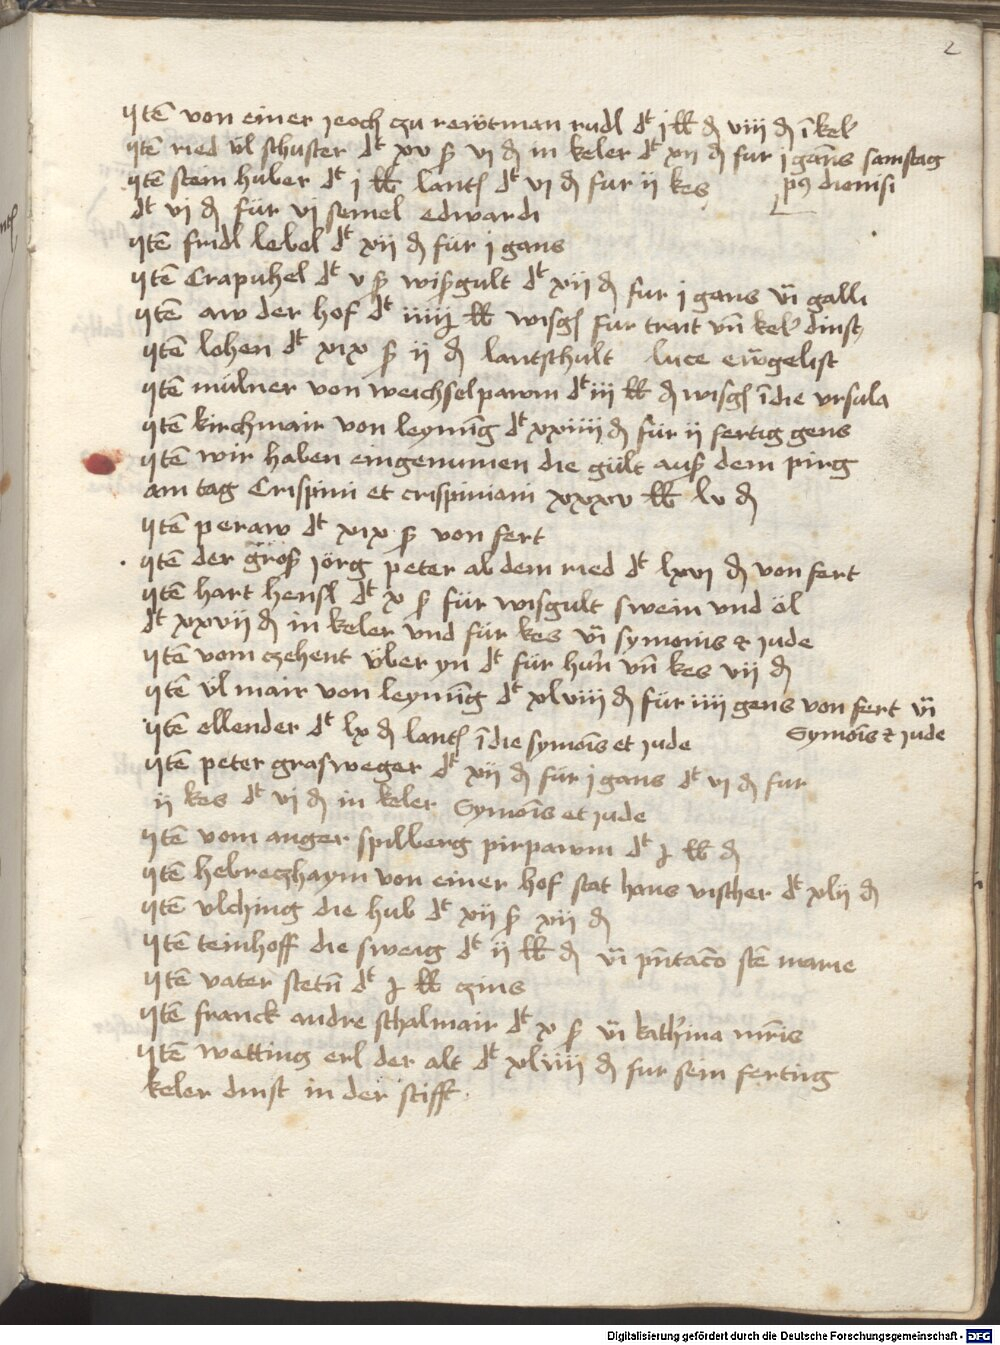 2
Itē von einer jeoch czu rewtman rudl dt j lb d viij d ī kel'
Itē ried vl schuster dt xv ß vi d in keler dt xij d fur j gans samstag
Itē stem huber dt j lb lantß dt vi d fur ij kes p9 dionisi
dt vj d für vj semel edwardi
Itē fridl lebel dt xij d für j gans
Itē Crapuhel dt v ß wißgult dt xij d fur j gans vī galli
Itē aw der hof dt lb wisgß fur trait vn̄ kel' dinst
Itē lohen dt xix ß ij d lantschult luce ewgelist
Itē mülner von weichselpawm dt iij lb d wisgß ī die vrsula
Itē kirchmair von leymīg dt xxiiij d für ij fertig gens
Itē wir haben eingenumen die gült auß dem pirg
am tag Crispini et crispiniani xxxv lb lv d
Itē peraw dt xix ß von fert
Itē der groß jörg peter ab dem ried dt lxvi d von fert
Itē hart hensl dt x ß für wisgult swein vnd öl
dt xxvij d in keler vnd für kes vī symonis & jude
Itē vom czehent vber yn dt für hun̄ vn̄ kes vij d
Itē vl mair von leymīg dt xlviij d für iiij gens von fert vī
Itē ellender dt lx d lantß ī die symōis et jude Symōis & jude
Itē peter grasweger dt xij d für j gans dt vi d fur
ij kes dt vj d in keler Symōis et jude
Itē vom anger spilberg pirpawm dt lb d
Itē hebreczhaym von einer hof stat hans vischer dt xlij d
Itē vlching die hub dt xij ß xij d
Itē teinhoff die sweig dt ij lb d vī pn̄tacō stē marie
Itē vater stetn̄ dt lb czins
Itē franck andre schalmair dt x ß vī kath'ina
Itē wetting erl der alt dt xlviij d fur sein fertig
keler dinst in der stifft
Digitalisierung gefördert durch die Deutsche Forschungsgemeinschaft - DFG